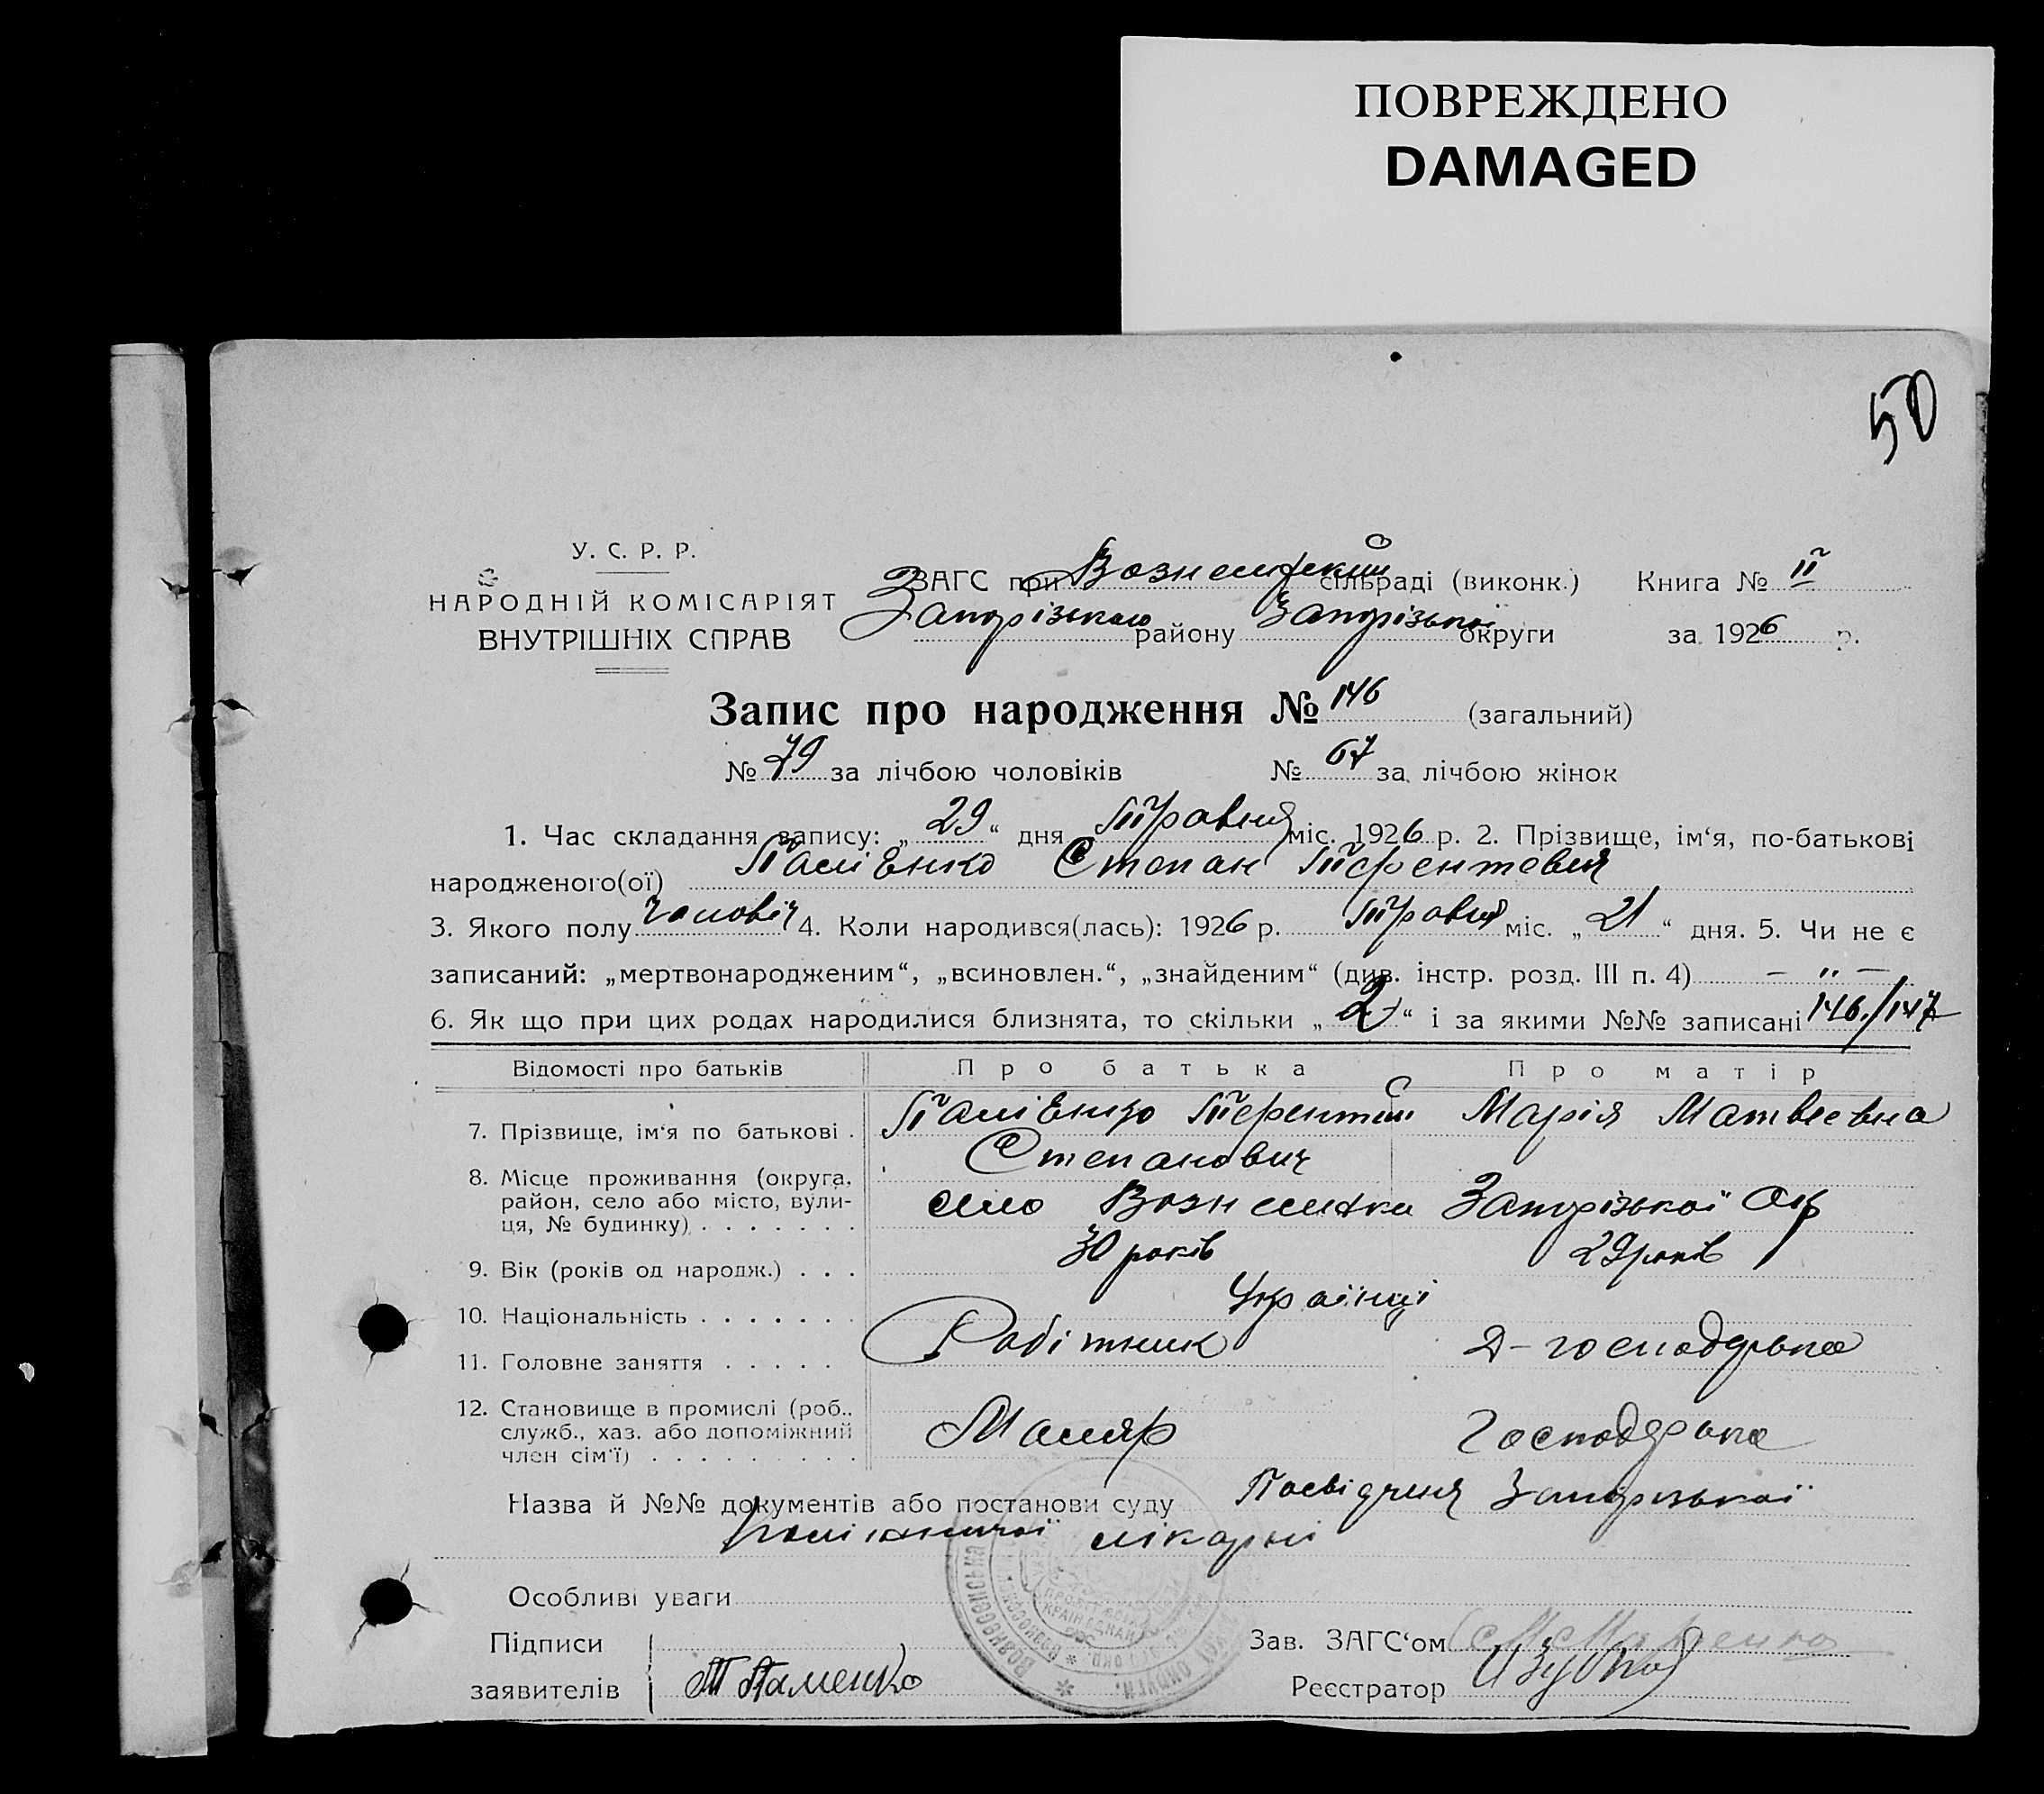 ПОВРЕЖДЕНО
DAMAGED
50
У. С. Р. Р.
НАРОДНІЙ КОМІСАРІЯТ
ВНУТРІШНІХ СПРАВ
ЗАГС при Вознесенский сільраді (виконк.) Книга № II
Запорізького району Запорізької округи за 1926 р.
Запис про народження № 146 (загальний)
№ 79 за лічбою чоловіків № 67 за лічбою жінок
1. Час складання запису: „ 29 “ дня Травня міс. 1926 р. 2. Прізвище, ім‘я, по-батькові
народженого(ої) Степан Терентовия
3. Якого полу чоловіч 4. Коли народився(лась): 1926 р. Травня міс. „ 21 “ дня. 5. Чи не є
записаний: „мертвонародженим“, „всиновлен.“, „знайденим“ (див. інстр. розд. III п. 4) – „ –
6. Як що при цих родах народилися близнята, то скільки „ 2 “ і за якими №№ записані 146./147
Відомості про батьків Про батька Про матір
7. Прізвище, ім‘я по батькові . Терентій Марія Матвеевна
Степанович
8. Місце проживання (округа, район, село або місто, вулиця, № будинку) . . . . . . . село Вознесенка Запорізької Окр
9. Вік (років од народж.) . . . 30 років 29 років
10. Національність . . . . . . . Українці
11. Головне заняття . . . . . Робітник Д-господарька
12. Становище в промислі (роб., служб., хаз. або допоміжний член сім‘ї) . . . . . . . . . Маляр Господарька
Назва й №№ документів або постанови суду Посвідченя Запорізької
лікарні
Особливі уваги
Підписи
заявителів
Зав. ЗАГС‘ом
Реєстратор